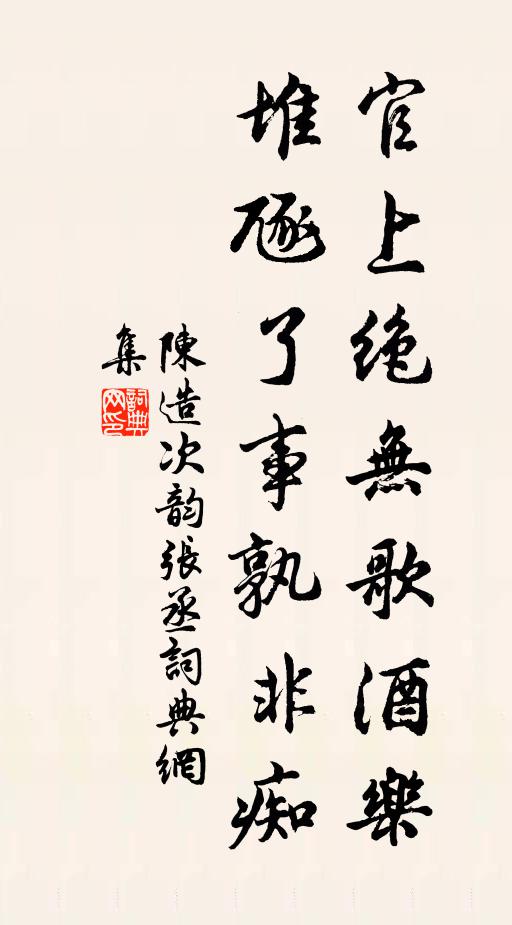 官上絶無歌酒樂
堆豗了事孰非痴
陳造次韵張丞詞典網
集
詞典
网印